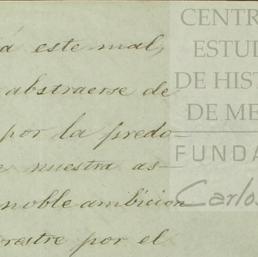 á este mal,
abstraerse de
por la predo-
e nuestra as-
noble ambicion
restre por el
CENTR
ESTUDI
DE HIST
DE ME
FUNDA
Carlos